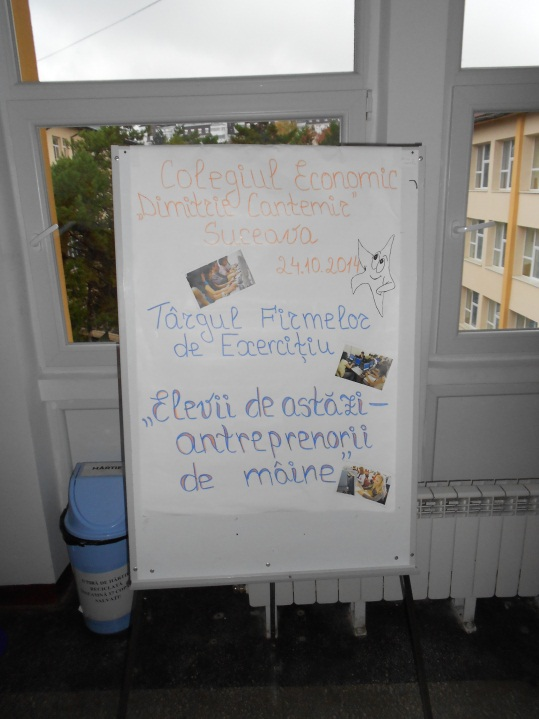 Colegiul Economic
Dimitrie Cantemir"
Suceava
24.10.2014
Târgul Firmelor
de Exercițiu
„Elevii de astăzi –
antreprenorii
de mâine”
HÂRTIE